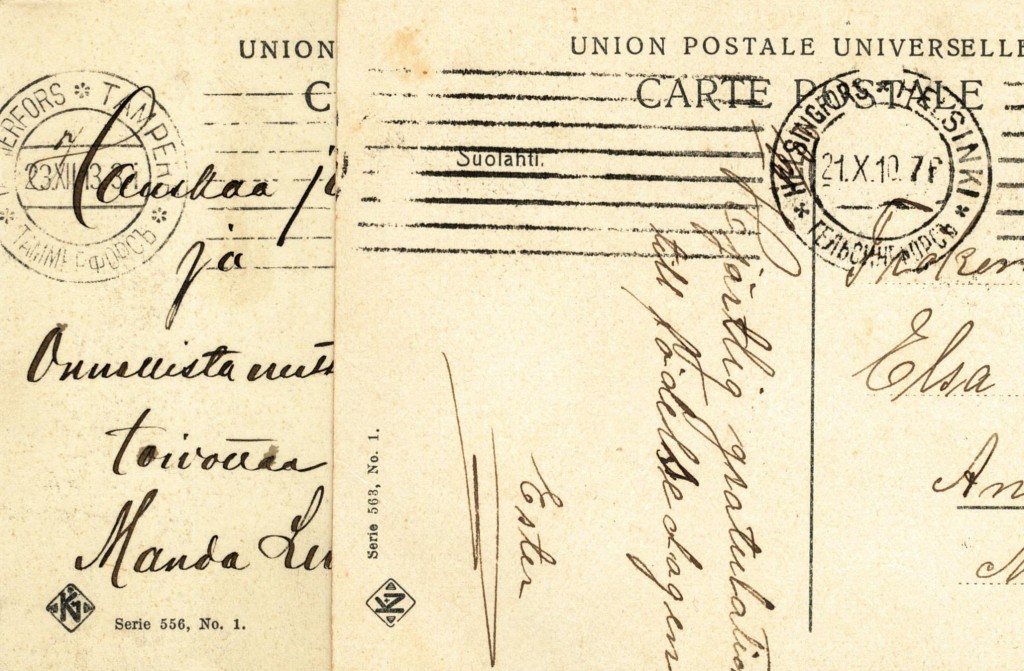 UNION
C
TAMPER
ERFORS
23.XII.13
ТАММЕРФОРСЪ
Hauskaa jo
ja
Onnellista
toivottaa
Manda
Serie 556, No. 1.
UNION POSTALE UNIVERSELLE
CARTE POSTALE
Suolahti.
HELSINGFORS * HELSINKI
21.X.10.
ГЕЛЬСИНГФОРСЪ
Hjärtlig gratulation
till födelsedagen
Ester
Fröken
Elsa
An
Serie 563, No. 1.